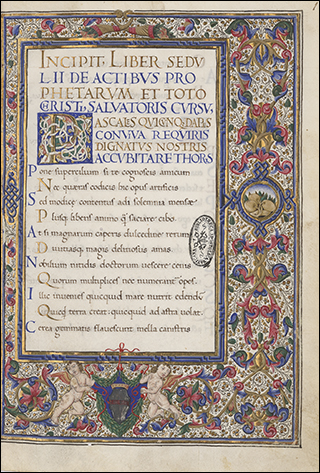 INCIPIT LIBER SEDV
LII DE ACTIBVS PRO
PHETARVM ET TOTO
CHRISTI SALVATORIS CVRSV,
PASCALES QVICVNQ; DAPES
CONVIVA REQVIRIS
DIGNATVS NOSTRIS
ACCVBITARE THORIS
Pone supercilium si te cognoscis amicum
Nec quaeras codicis hic opus artificis
Sed modicae contentus adi solemnia mensae
Plusq; libens animo q̃ saciare cibo.
At si magnarum caperis dulcedine rerum
Divitiasq; magis deliciosus amas
Nobilium nitidis doctorum vescere cenis
Quorum multiplices nec numerantur opes.
Illic invenies quicquid mare nutrit edendum
terra creat: quicquid ad astra volat.
Cerea gemmatis flavescunt mella canistris